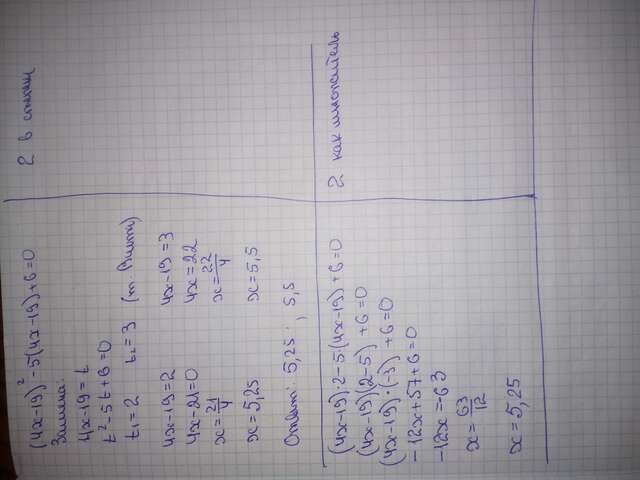 (4x-19)²-5(4x-19)+6=0
2 в степени
Замена:
4x-19=t
t²-5t+6=0
t₁=2 t₂=3 (т. Виета)
4x-19=2 4x-19=3
4x-21=0 4x=22
x=21/4 x=22/4
x=5,25 x=5,5
Ответ: 5,25 ; 5,5
(4x-19)·2-5(4x-19)+6=0
2 как множитель
(4x-19)(2-5)+6=0
(4x-19)·(-3)+6=0
-12x+57+6=0
-12x=-63
x=63/12
x=5,25